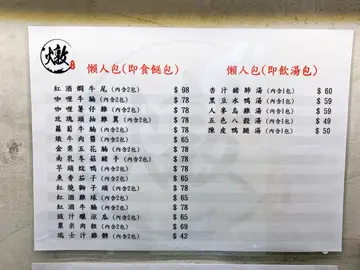 燉
懶人包(即食餸包)
紅酒燜牛尾(內含2包) $98
咖喱牛腩(內含2包) $78
咖喱薯仔雞(內含2包) $78
玫瑰頭抽雞翼(內含2包) $78
蘿蔔牛腩(內含2包) $78
燉牛肉醬(內含2包) $65
金栗五花腩(內含2包) $78
南乳冬菇豬手(內含2包) $78
芋頭炆鴨(內含2包) $78
魚香茄子(內含2包) $65
紅燒獅子頭(內含2包) $78
紅酒雞球(內含2包) $65
紅酒牛腩(內含2包) $78
豉汁 涼瓜(內含2包) $65
粟米肉粒(內含2包) $69
瑞士汁雞髀(內含2包) $42
懶人包(即飲湯包)
杏汁豬肺湯(內含1包) $60
黑豆水鴨湯(內含1包) $59
人參烏雞湯(內含1包) $59
五色八穀湯(內含1包) $49
陳皮鴨腿湯(內含1包) $50